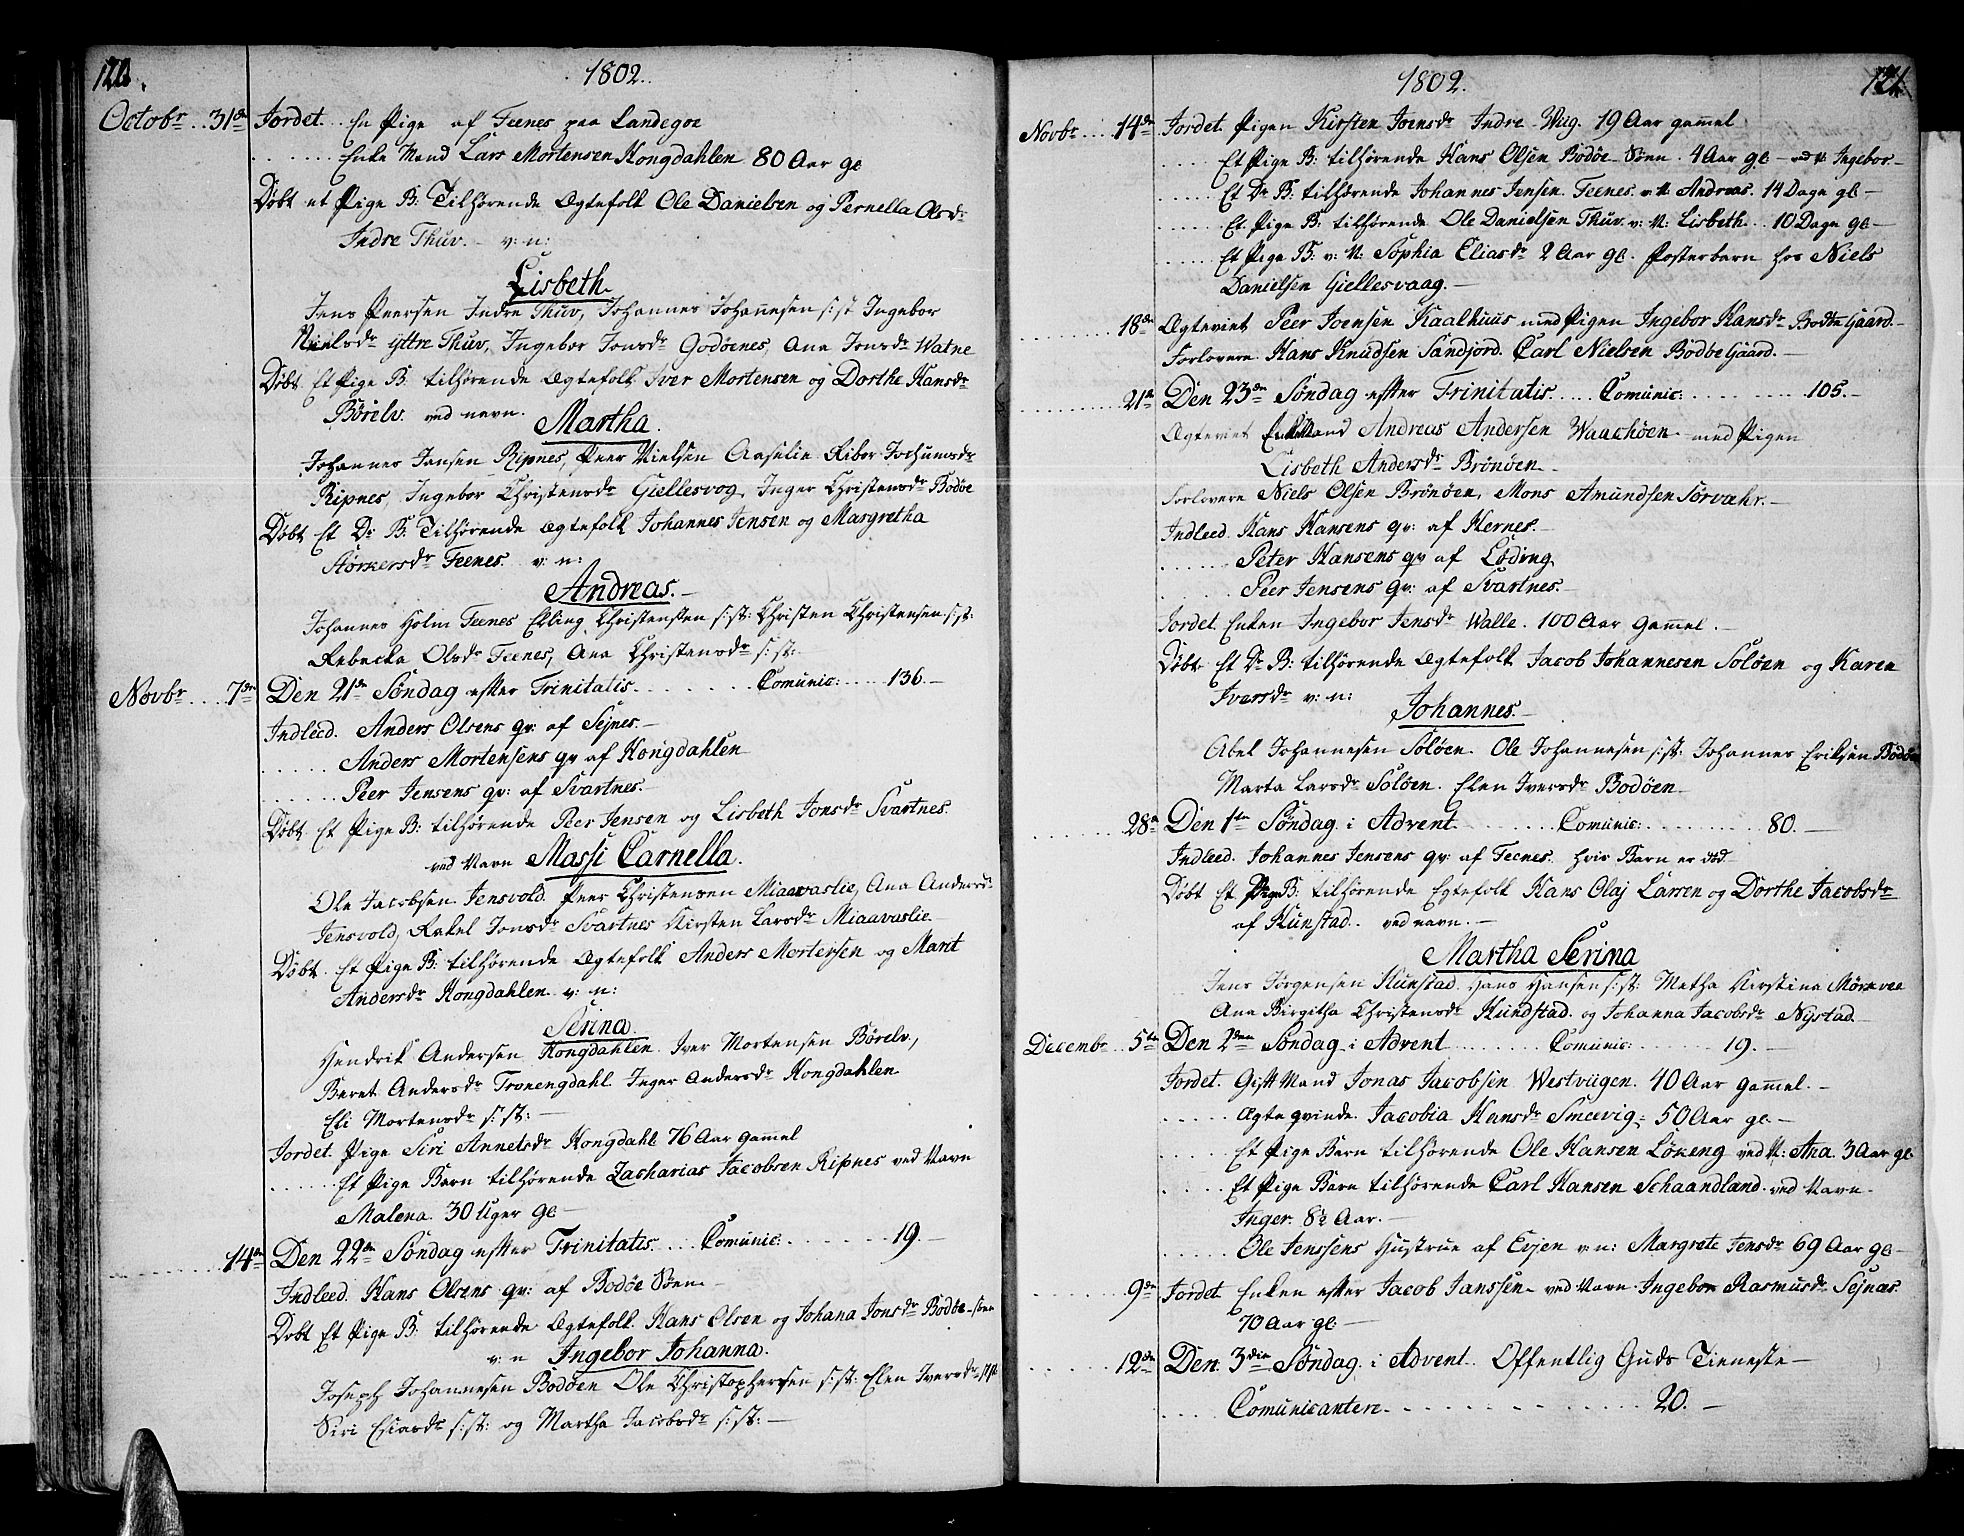 120.
1802.
Octobr. 31de Jordet. En Pige af Feenes paa Landegoe
Enke Mand Lars Mortensen Hongdahlen 80 Aar gl
Døbt et Pige B: Tilhørende Ægtefolk Ole Danielsen og Pernella Olsdr
Indre Thuv. v: n:
Lisbeth.
Jens Peersen Indre Thuv, Johannes Johannesen s: st Ingebor
Nielsdr Yttre Thuv, Ingebor Jonsdr Godøenes, Ana Jonsdr Watne
Døbt Et Pige B: tilhørende Ægtefolk Iver Mortensen og Dorthe Hansdr
Børelv. ved navn.
Martha.
Johannes Jansen Ripnes, Peer Nielsen Aaselie Riber Jochumsdr
Ripnes, Ingebor Christensdr Giellesvog, Inger Christensdr Bodøe
Døbt Et D: B: Tilhørende Ægtefolk Johannes Jensen og Margretha
Størkersdr Feenes. v: n:
Andreas.
Johannes Holm Feenes Elling Christensen s: st: Christen Christensen s: st:
Rebecka Olsdr Feenes, Ana Christensdr s: st:
Novbr. 7de Den 21de Søndag efter Trinitatis. Comunic: 136.
Indleed. Anders Olsens qv: af Sejnes.
Anders Mortensens qv af Hongdahlen
Peer Jensens qv: af Svartnes.
Døbt Et Pige B: tilhørende Peer Jensen og Lisbeth Jonsdr Svartnes.
ved Navn Massi Carnella.
Ole Jacobsen Jensvold. Peer Christensen Miaavaslie, Ana Andersdr
Jensvold, Rakel Jonsdr Svartnes Kirsten Larsdr Miaavaslie
Døbt. Et Pige B: tilhørende Ægtefolk Anders Mortensen og Marit
Andersdr Hongdahlen v: n:
Serina.
Hendrik Andersen Hongdahlen. Iver Mortensen Børelv,
Beret Andersdr Tronengdahl. Inger Andersdr Hongdahlen
Eli Mortensdr s: st:
Jordet. Pige Siri Annetsdr Hongdahl 76 Aar gammel
Et Pige Barn tilhørende Zacharias Jacobsen Ripnes ved Navn
Malena. 30 Uger gl
14de Den 22de Søndag efter Trinitatis. Comunic: 19.
Indleed. Hans Olsens qv: af Bodøe Søen
Døbt Et Pige B: tilhørende Ægtefolk Hans Olsen og Johana Jonsdr Bodøe-søen
v: n Ingebor Johanna.
Joseph Johannesen Bodøen Ole Christophersen s: st: Elen Iversdr s: st:
Siri s: st: og Martha Jacobsdr s: st:
1802.
121.
Novbr. 14de Jordet. Pigen Kirsten Joensdr Indre Vug. 19 Aar gammel
Et Pige B: tilhørende Hans Olsen Bodøe Søen. 4 Aar gl ved N: Ingebor
Et D: B: tilhørende Johannes Jensen Feenes. v: N Andreas. 14 Dage gl
Et Pige B: tilhørende Ole Danielsen Thuv. v: N: Lisbeth. 10 Dage gl
Et Pige B: v: N: Sophia Eliasdr 2 Aar gl. Fosterbarn hos Niels
Danielsen Giellesvaag.
18de Ægteviet Peer Joensen Kaalhuus med Pigen Ingebor Hansdr Bodbe Gaard.
Forlovere Hans Knudsen Sandjord. Carl Nielsen Bodbe Gaard.
21de Den 23de Søndag efter Trinitatis. Comunic: 105.
Ægteviet EnkeMand Andreas Andersen Waachøen med Pigen
Lisbeth Andersdr Brønøen
Forlovere Niels Olsen Brønøen, Mons Amundsen Sørvahr.
Indleed. Hans Hansens qv: af Hernes.
Peter Hansens qv af Løding
Peer Jensens qv: af Svartnes.
Jordet. Enken Ingebor Jensdr Walle. 100 Aar Gammel.
Døbt Et D: B: tilhørende Ægtefolk Jacob Johannesen Soløen og Karen
Iversdr v: n:
Johannes.
Abel Johannesen Soløen. Ole Johannesen s: st: Johannes Eriksen Bodøen
Marta Larsdr Soløen. Elen Iversdr Bodøen
28de Den 1ste Søndag i Advent. Comunic: 80.
Indleed. Johannes Jensens qv: af Feenes. hvis Barn er død
Døbt Et Pige B: tilhørende Egtefolk Hans Olaj Larsen og Dorthe Jacobsdr
af Hunstad. ved navn.
Martha Serina
Jens Jørgensen Hunstad. Hans Hansen s: st: Metha Kirstina Mørkvee
Ana Birgitha Christensdr Hundstad. og Johanna Jacobsdr Nystad.
Decembr. 5te Den 2den Søndag i Advent Comunic: 19.
Jordet. Gift Mand Jonas Jacobsen Westvugen. 40 Aar gammel.
Ægte qvinde. Jacobia Hansdr Smeevig. 50 Aar gl.
Et Pige Barn tilhørende Ole Hansen Løkeng ved N: Ana. 3 Aar gl
Et Pige Barn tilhørende Carl Hansen Schaandland. ved Navn.
Inger. 8½ Aar.
Ole Jenssens Hustrue af Evjen v: n: Margrete Jensdr 69 Aar gl
9de Jordet Enken efter Jacob Janssen ved Navn Ingebor Rasmusdr Sejnæs.
70 Aar gl
12de Den 3die Søndag i Advent. Offentlig Guds Tieneste
Comunicantere. 20.